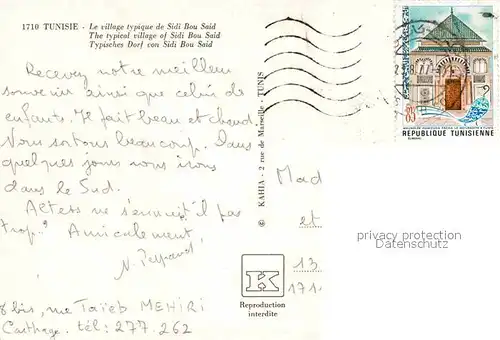 1710 TUNISIE - Le village typique de Sidi Bou Saïd
The typical village of Sidi Bou Saïd
Typisches Dorf von Sidi Bou Saïd
Recevez notre meilleur
souvenir ainsi que celui de
enfants. Il fait beau et chaud.
Nous sortons beaucoup. Dans
quelques jours nous irons
dans le Sud.
ne s'ennuit'il pas
trop? Amicalement,
N.
8 bis, rue Taïeb MEHIRI
Carthage. tél: 277.262
© KAHIA - 2 rue de Marseille - TUNIS
K
Reproduction
interdite
65
REPUBLIQUE TUNISIENNE
Mad
et
13
171
privacy protection
Datenschutz